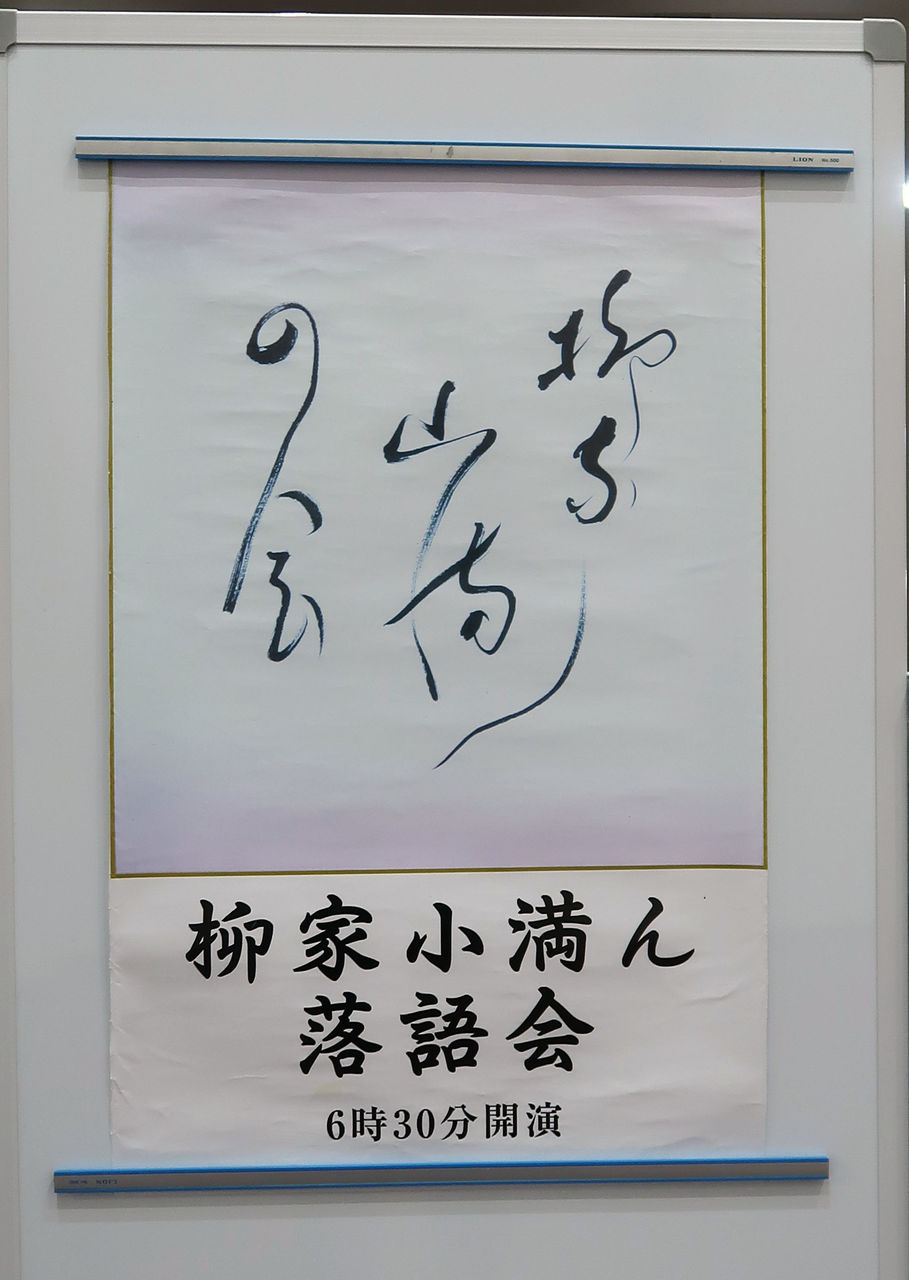 LION No.500
柳家
の会
柳家小満ん
落語会
6時30分開演